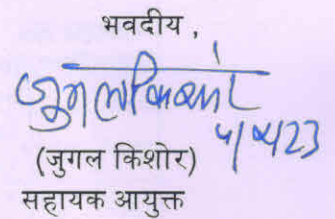 भवदीय,
जुगल किशोर
(जुगल किशोर)
सहायक आयुक्त